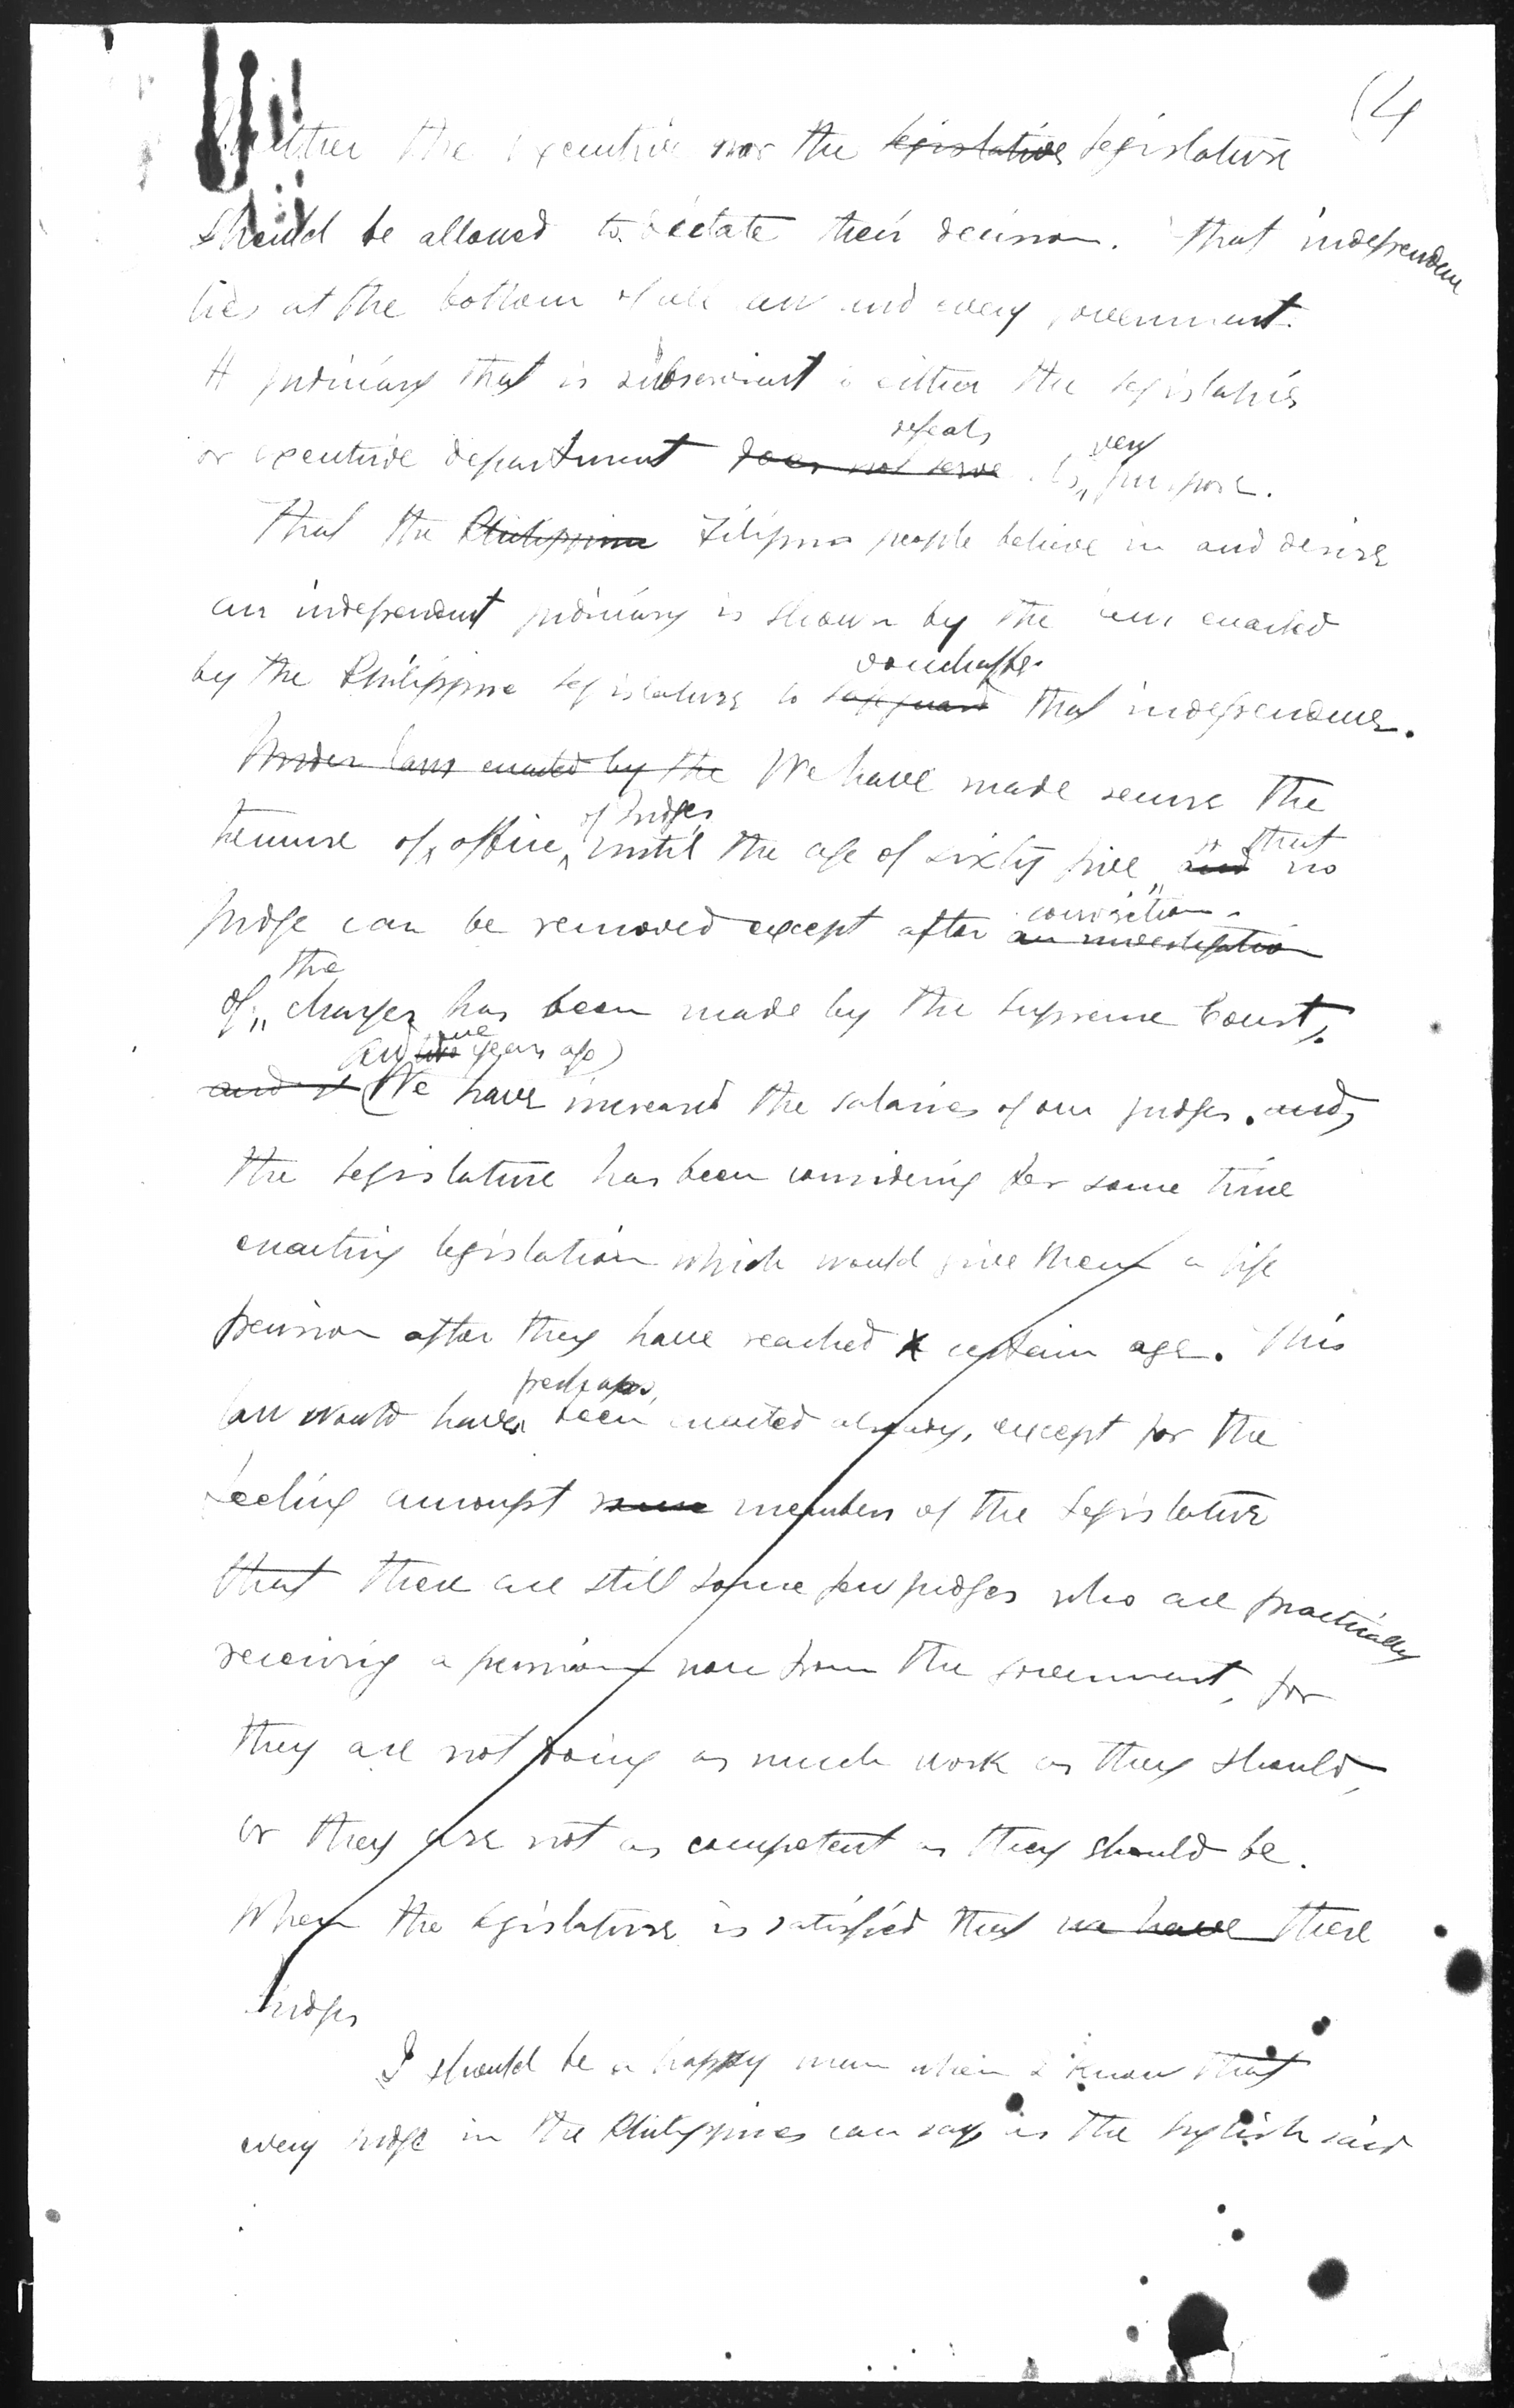 (4
Neither the executive nor the legislative Legislature
should be allowed to dictate their decision. That independence
lies at the bottom of all law and every government.
A judiciary that is subservient to either the legislative
defeats very
or executive department does not serve its purpose.
That the Philippine Filipino people believe in and desire
an independent judiciary is shown by the law enacted
vouchsafe
by the Philippine Legislature to safeguard that independence.
Under laws enacted by the We have made secure the
of judges
tenure of office, until the age of sixty five and no
that
judge can be removed except after an investigation
conviction
the
of charges has been made by the Supreme Court,
and two years ago)
and (We have increased the salaries of our judges. and,
the Legislature has been considering for some time
enacting legislation which would give them a life
pension after they have reached a certain age. This
perhaps,
law would have been enacted already, except for the
feeling amongst some members of the Legislature
that there are still some few judges who are practically
receiving a pension now from the government, for
they are not doing as much work as they should,
or they are not as competent as they should be.
When the legislature is satisfied that we have these
judges
I should be a happy man when I know that
every judge in the Philippines can say as the English said